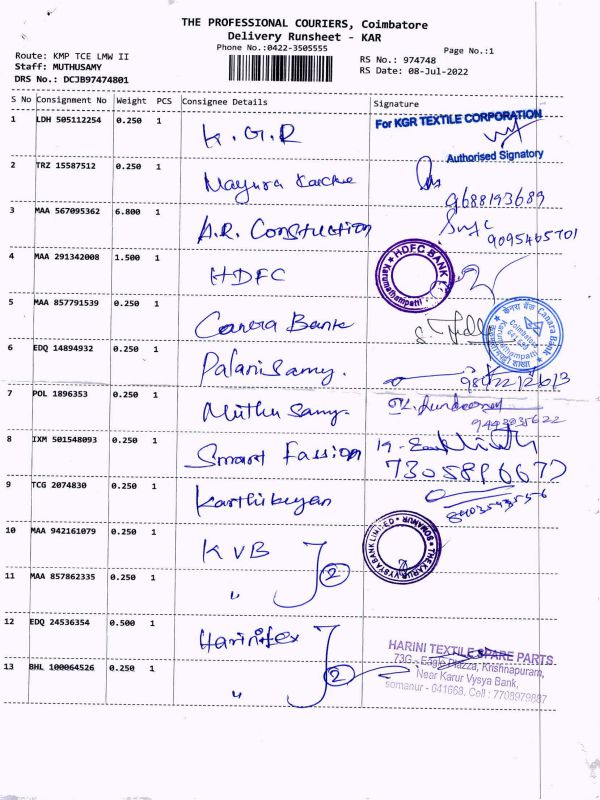 THE PROFESSIONAL COURIERS, Coimbatore
Delivery Runsheet - KAR
Phone No.:0422-3505555
Page No.:1
Route: KMP TCE LMW II
Staff: MUTHUSAMY
DRS No.: DCJB97474801
RS No.: 974748
RS Date: 08-Jul-2022
S No Consignment No Weight PCS Consignee Details Signature
1 LDH 505112254 0.250 1 K.G.R
For KGR TEXTILE CORPORATION
Authorised Signatory
2 TRZ 15587512 0.250 1 Mayura
9688193689
3 MAA 567095362 6.800 1 A.R. Construction
9095465701
4 MAA 291342008 1.500 1 HDFC
HDFC BANK
Karumathampatti
5 MAA 857791539 0.250 1 Canera Bank
केनरा बैंक Canara Bank
Coimbatore
641 659
Karumathampatti
6 EDQ 14894932 0.250 1 Palanisamy.
7 POL 1896353 0.250 1 Muthu Samy.
9443035622
8 IXM 501548093 0.250 1 Smart Fassion
9 TCG 2074830 0.250 1 Karthikeyan
10 MAA 942161079 0.250 1 KVB
THE KARUR VYSYA BANK LIMITED
SOMANUR
11 MAA 857862335 0.250 1 " 2
12 EDQ 24536354 0.500 1 Harinitex
HARINI TEXTILE SPARE PARTS
73G - Eagle Plazza, Krishnapuram,
13 BHL 100064526 0.250 1 " 2
Near Karur Vysya Bank,
somanur - 641668, Cell : 7708979887